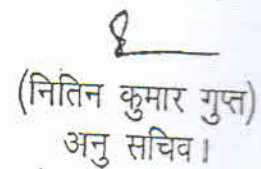 (नितिन कुमार गुप्त)
अनु सचिव।